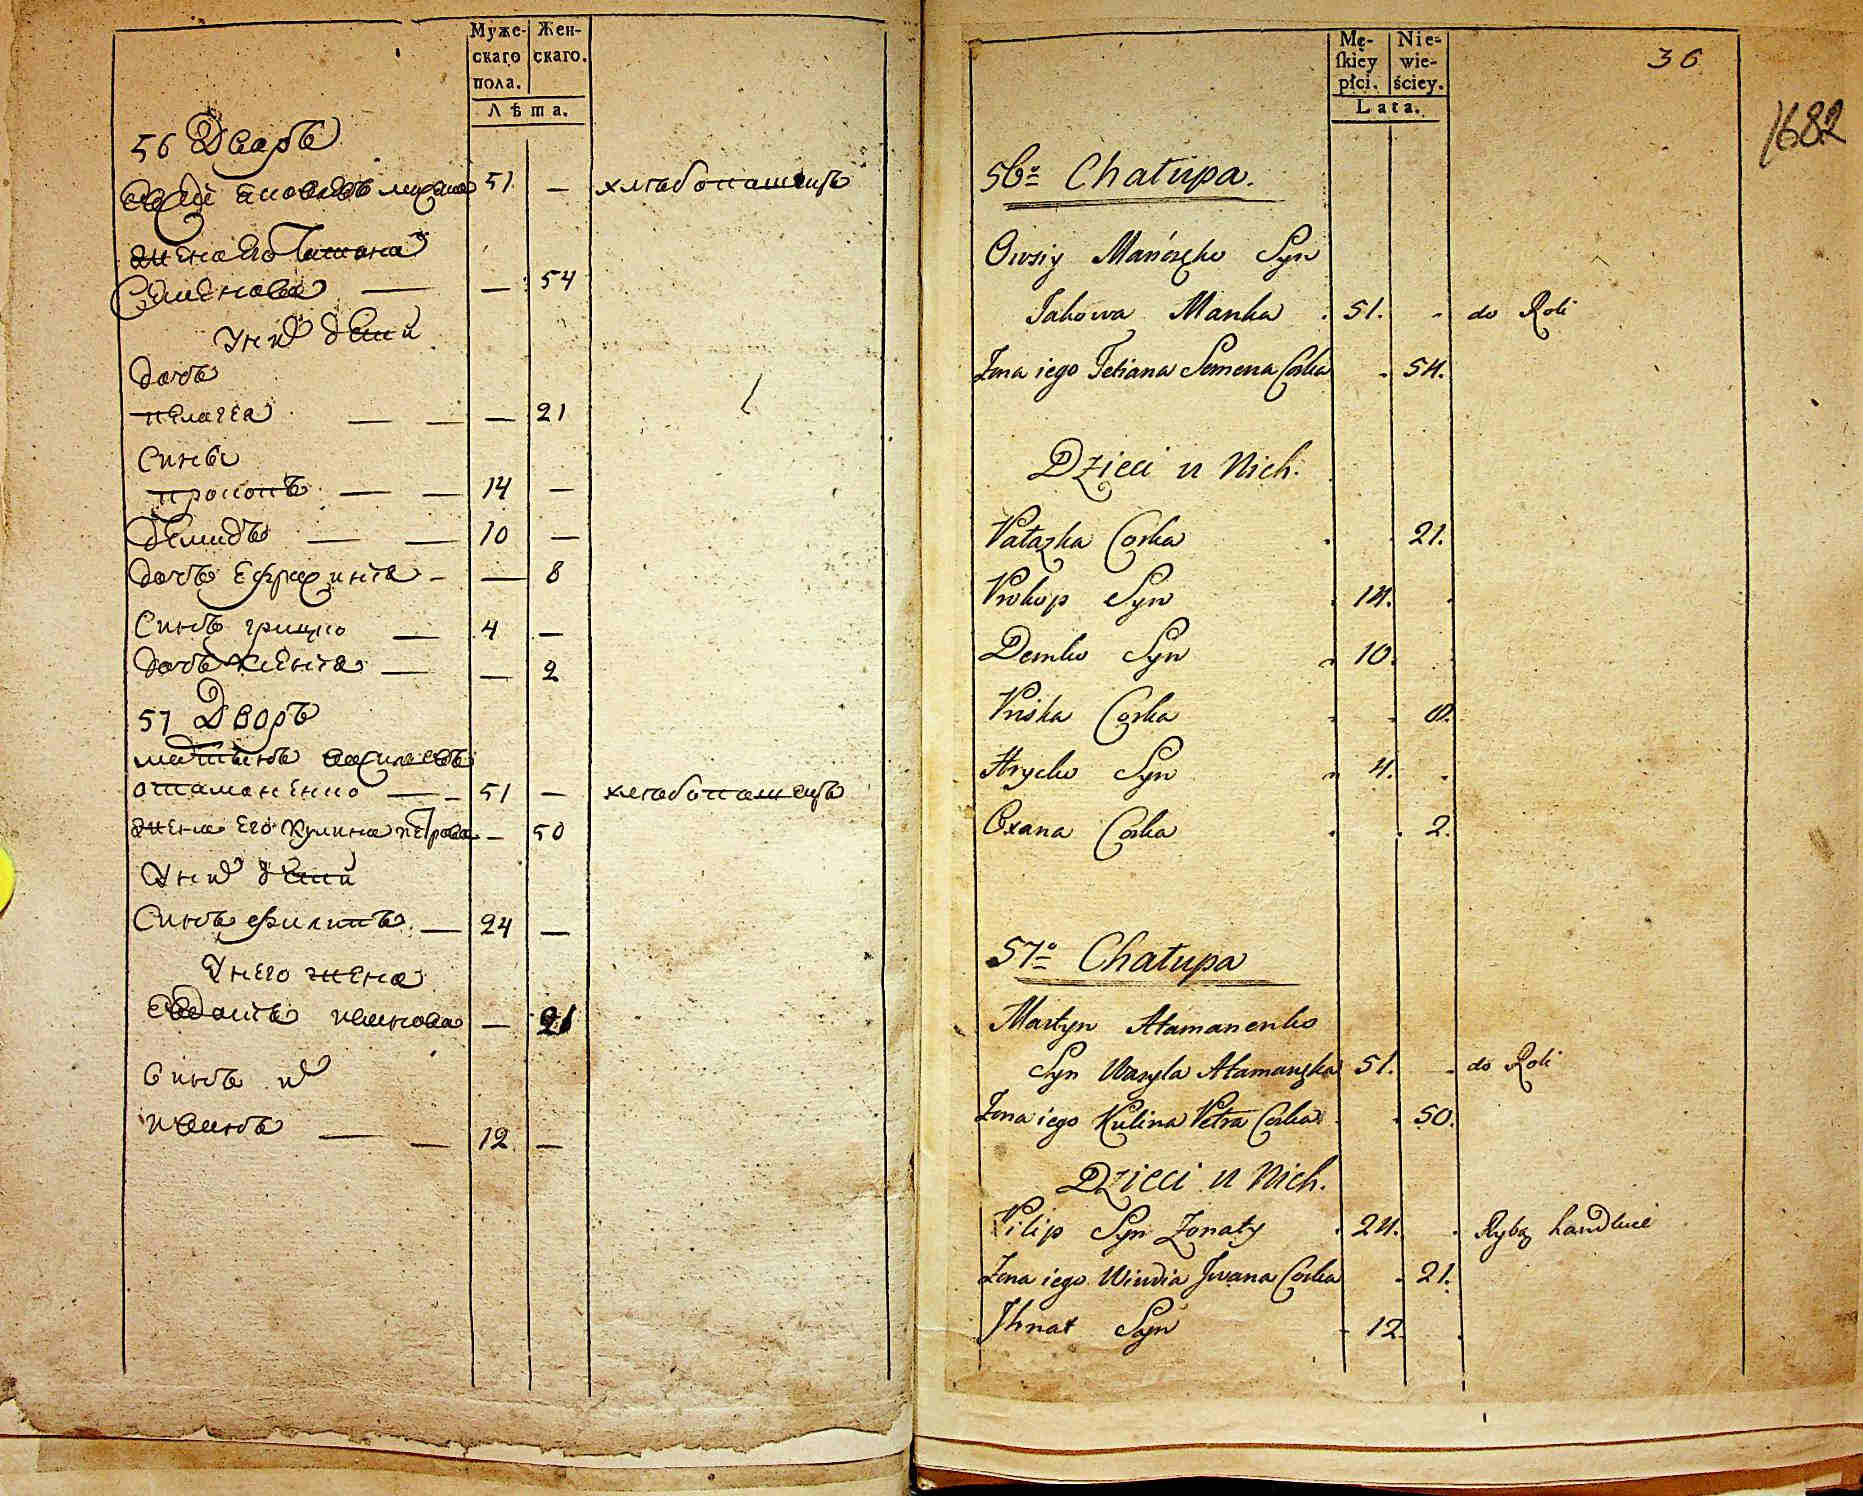 Муже-
скаго
пола.
Жен-
скаго.
Лѣта.
56 Дворъ
Евсей Яковлевъ 51 — хлебопашецъ
жена его Татiана
Семенова — — 54
У них дети
дочь
пелагея — — — 21
Сины
прокопъ — — 14 —
Демидъ — — 10 —
дочь Ефросиния — — 8
Синъ грицко — 4 —
дочь Ксения — — 2
57 Дворъ
мартинъ василевъ
отаманенко — — 51 — хлебопашецъ
жена его Кулина петрова — 50
У них дети
Синъ филипъ — 24 —
У него жена
Евдокия иванова — 21
Синъ их
— — 12 —
Mę-
skiey
płci.
Nie-
wie-
ściey.
Lata.
36
1682
56º Chałupa.
Owsiy Syn
Jakowa Manka 51. do Roli
Zona iego Tetiana Semena Corka 54.
Dzieci u Nich.
Pałazka Corka 21.
Prokop Syn 14.
Demko Syn 10.
Priska Corka 8.
Hrycko Syn 4.
Oxana Corka 2.
57º Chałupa
Martyn Atamanenko
Syn Wasyla Atamanzka 51. do Roli
Zona iego Kulina Petra Corka 50.
Dzieci u Nich.
Filip Syn Zonaty 24. Rybą handluie
Zona iego Iwana Corka 21.
Ihnat Syn 12.